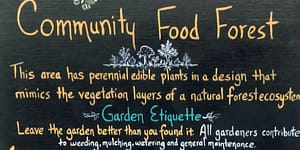 Community Food Forest
This area has perennial edible plants in a design that
mimics the vegetation layers of a natural forest ecosystem
Garden Etiquette
Leave the garden better than you found it All gardeners contribute
to weeding, mulching, watering and general maintenance.